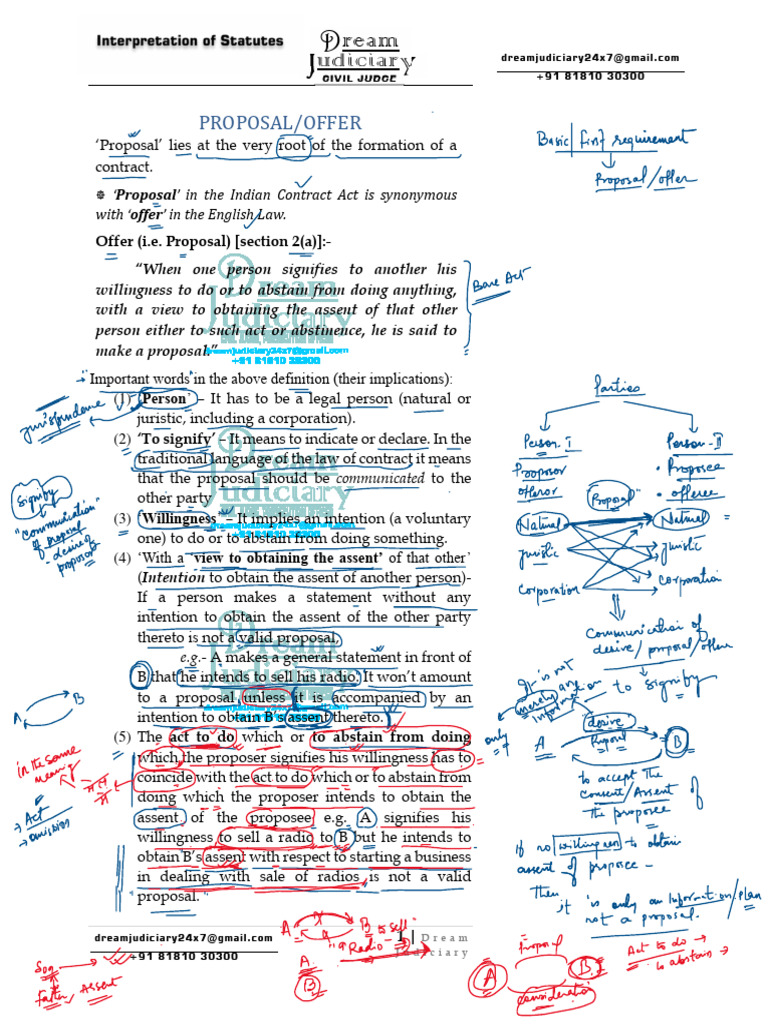 Interpretation of Statutes
Dream
Judiciary
CIVIL JUDGE
dreamjudiciary24x7@gmail.com
+91 81810 30300
PROPOSAL/OFFER
‘Proposal’ lies at the very root of the formation of a
contract.
‘Proposal’ in the Indian Contract Act is synonymous
with ‘offer’ in the English Law.
Offer (i.e. Proposal) [section 2(a)]:-
“When one person signifies to another his
willingness to do or to abstain from doing anything,
with a view to obtaining the assent of that other
person either to such act or abstinence, he is said to
make a proposal.”
Dream
Judiciary
dreamjudiciary24x7@gmail.com
+91 81810 30300
Important words in the above definition (their implications):
(1) ‘Person’ – It has to be a legal person (natural or
juristic, including a corporation).
(2) ‘To signify’ – It means to indicate or declare. In the
traditional language of the law of contract it means
that the proposal should be communicated to the
other party
(3) ‘Willingness’ – It implies an intention (a voluntary
one) to do or to abstain from doing something.
(4) ‘With a ‘view to obtaining the assent’ of that other’
(Intention to obtain the assent of another person)-
If a person makes a statement without any
intention to obtain the assent of the other party
thereto is not a valid proposal,
e.g.- A makes a general statement in front of
B that he intends to sell his radio. It won’t amount
to a proposal unless it is accompanied by an
intention to obtain B’s assent thereto.
(5) The act to do which or to abstain from doing
which the proposer signifies his willingness has to
coincide with the act to do which or to abstain from
doing which the proposer intends to obtain the
assent of the proposee e.g. A signifies his
willingness to sell a radio to B but he intends to
obtain B’s assent with respect to starting a business
in dealing with sale of radios is not a valid
proposal.
Basic/first requirement
Proposal/offer
Bare Act
jurisprudence
Signify
"Communication"
of proposal
- desire of
proposal
A B
in the same
meaning
→ Act
→ omission
Parties
Person-I
Proposor
offeror
Person-II
• Proposee
• offeree
Proposal
Natural
Natural
juristic
juristic
Corporation
Corporation
Communication of
desire/proposal/offer
to signify
It is not
merely any
information
only
A
desire
B
to accept the
Consent/Assent of
the proposee
If no willingness to obtain
assent of proposee -
Then
it is only an Information/plan
not a proposal.
A B to sell
"a Radio"
A
B
Son
Father Assent
Proposal
A B
consideration
Act to do →
to abstain →
dreamjudiciary24x7@gmail.com
+91 81810 30300
1 | Dream
Judiciary